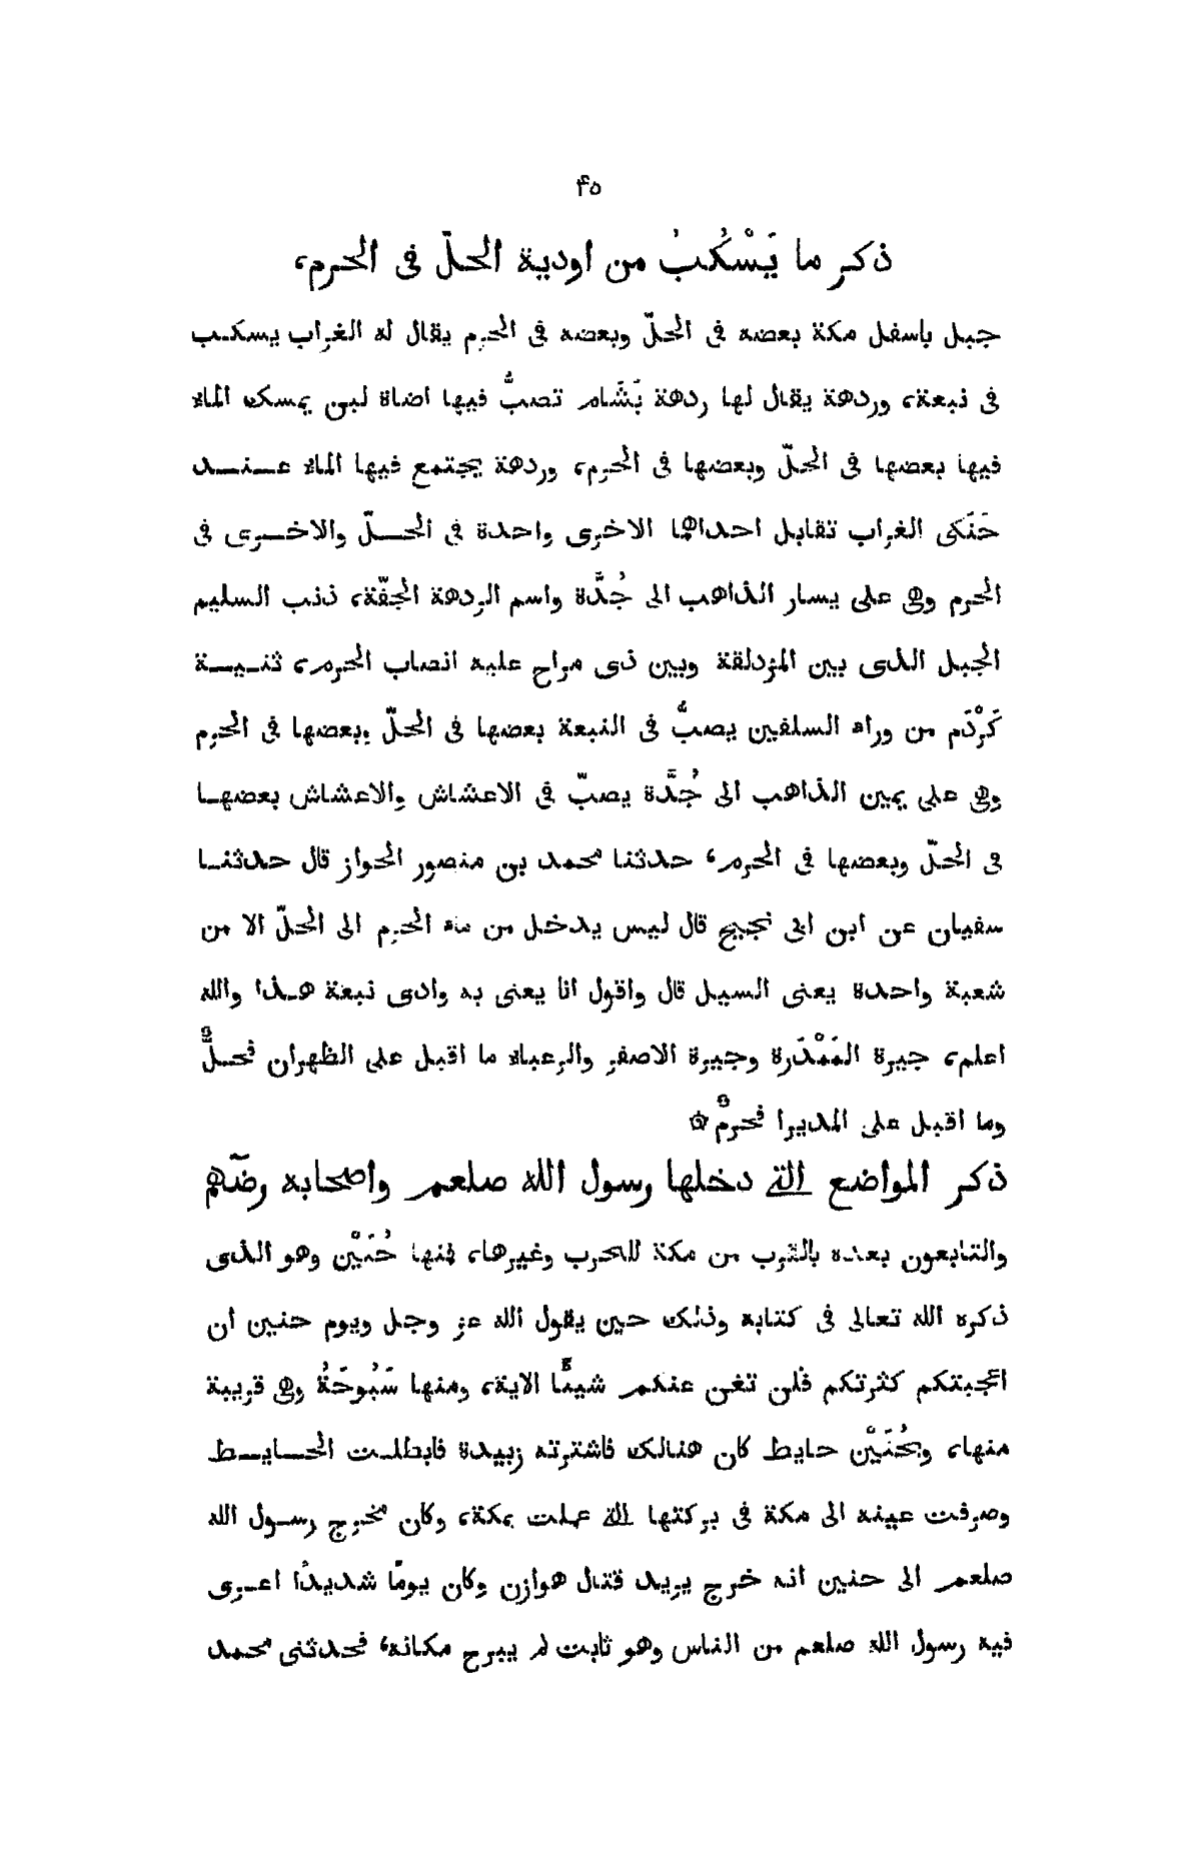 ٤٥
ذكر ما يَسْكُبُ من اودية الحلّ فى الحرم،
جبل باسفل مكة بعضه فى الحلّ وبعضه فى الحرم يقال له الغراب يسكب
فى نبعة، وردهة يقال لها ردهة بَشَام تصبُّ فيها اضاة لبن يمسك الماء
فيها بعضها فى الحلّ وبعضها فى الحرم، وردهة يجتمع فيها الماء عند
حَنَكى الغراب تقابل احداها الاخرى واحدة فى الحلّ والاخرى فى
الحرم وهى على يسار الذاهب الى جُدَّة واسم الردهة الجفّة، ذنب السليم
الجبل الذى بين المزدلفة وبين ذى مراح عليه انصاب الحرم، ثنية
كَرْدَم من وراء السلفين يصبُّ فى النبعة بعضها فى الحلّ وبعضها فى الحرم
وهى على يمين الذاهب الى جُدَّة يصبّ فى الاعشاش والاعشاش بعضها
فى الحلّ وبعضها فى الحرم، حدثنا محمد بن منصور الجواز قال حدثنا
سفيان عن ابن ابى نجيح قال ليس يدخل من ماء الحرم الى الحلّ الا من
شعبة واحدة يعنى السيل قال واقول انا يعنى به وادى نبعة هذا والله
اعلم، جيرة المَمْدَرة وجيرة الاصفر والرعباء ما اقبل على الظهران فحلٌّ
وما اقبل على المديرا فحرمٌ ۞
ذكر المواضع التى دخلها رسول الله صلعم واصحابه رضّهم
والتابعون بعده بالقرب من مكة للحرب وغيرها، فمنها حُنَيْن وهو الذى
ذكره الله تعالى فى كتابه وذلك حين يقول الله عز وجل ويوم حنين ان
اعجبتكم كثرتكم فلن تغن عنكم شيئًا الاية، ومنها سَبُوحَةُ وهى قريبة
منها، وبحُنَيْن حايط كان هنالك فاشترته زبيدة فابطلت الحايط
وصرفت عينه الى مكة فى بركتها التى عملت بمكة، وكان مخرج رسول الله
صلعم الى حنين انه خرج يريد قتال هوازن وكان يومًا شديدًا اعرى
فيه رسول الله صلعم من الناس وهو ثابت لم يبرح مكانه، فحدثنى محمد